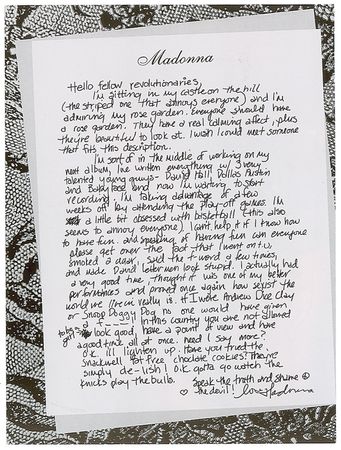 Madonna
Hello fellow revolutionaries,
I'm sitting in my castle on the hill
(the striped one that annoys everyone) and I'm
admiring my rose garden. Everyone should have
a rose garden. They have a real calming affect, plus
they're beautiful to look at. I wish I could meet someone
that fits this description.
I'm sort of in the middle of working on my
next album, I've written everything w/ 3 very
talented young guys - David Hall, Dallas Austin
and Babyface and now I'm waiting to start
recording. I'm taking advantage of a few
weeks off by attending the play-off games. I'm
a little bit obsessed with basketball (this also
seems to annoy everyone) I can't help it if I know how
to have fun. and speaking of having fun can everyone
please get over the fact that I went on t.v.
smoked a cigar, said the f word a few times,
and made David Letterman look stupid. I actually had
a very good time, thought it was one of my better
performances and proved once again how sexist the
world we live in really is. If I were Andrew Dice Clay
or Snoop Doggy Dog no one would have given
a f----. In this country you are not allowed
to look good, have a point of view and have
a good time all at once. need I say more?
O.K. I'll lighten up. Have you tried the
Snackwell fat free chocolate cookies? They're
simply de-lish! O.K. gotta go watch the
knicks play the bulls.
Speak the truth and shame
the devil! love Madonna